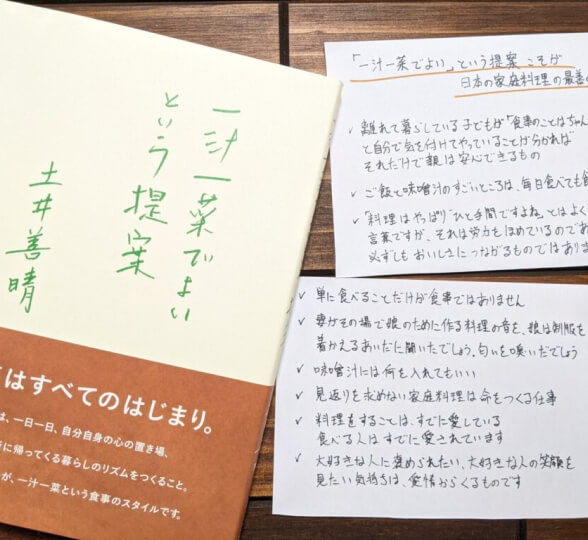 一汁一菜でよい
という提案
土井善晴
はすべてのはじまり。
は、一日一日、自分自身の心の置き場、
に帰ってくる暮らしのリズムをつくること。
が、一汁一菜という食事のスタイルです。
「一汁一菜でよい」という提案こそが
日本の家庭料理の最善の
✓ 離れて暮らしている子どもが「食事のことはちゃん
と自分で気を付けてやっていることが分かれば
それだけで親は安心できるもの
✓ ご飯と味噌汁のすごいところは、毎日食べても
✓ 「料理はやっぱり"ひと手間"ですよね」とはよく
言葉ですが、それは労力をほめているのであ
必ずしもおいしさにつながるものではありま
✓ 単に食べることだけが食事ではありません
✓ 妻がその場で娘のために作る料理の音を、娘は制服を
着かえるあいだに聞いたでしょう。匂いを嗅いだでしょう
✓ 味噌汁には何を入れてもいい
✓ 見返りを求めない家庭料理は命をつくる仕事
✓ 料理をすることは、すでに愛している
食べる人はすでに愛されています
✓ 大好きな人に褒められたい、大好きな人の笑顔を
見たい気持ちは、愛情からくるものです